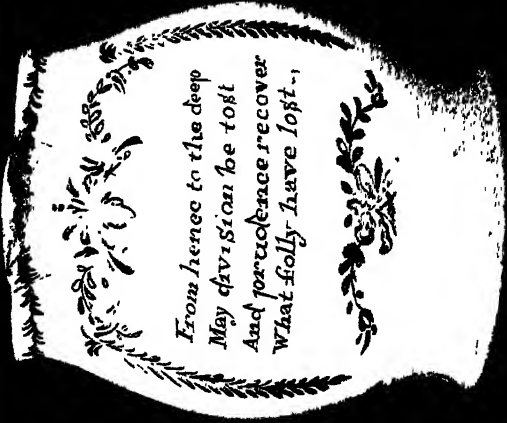 From hence to the deep
May division be tost
And prudence recover
What folly have lost.,